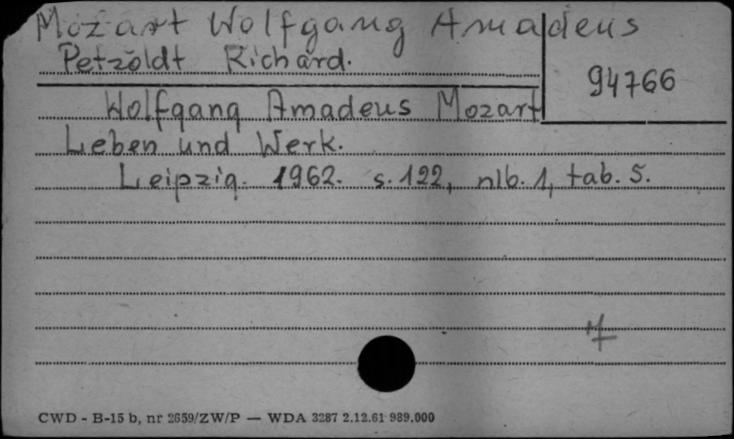 Mozart Wolfgang Amadeus
Petzoldt Richard.
94766
Wolfgang Amadeus Mozart
Leben und Werk.
Leipzig. 1962. s. 122, nlb. 1, tab. 5.
CWD - B-15 b, nr 2659/ZW/P — WDA 3287 2.12.61 989.000